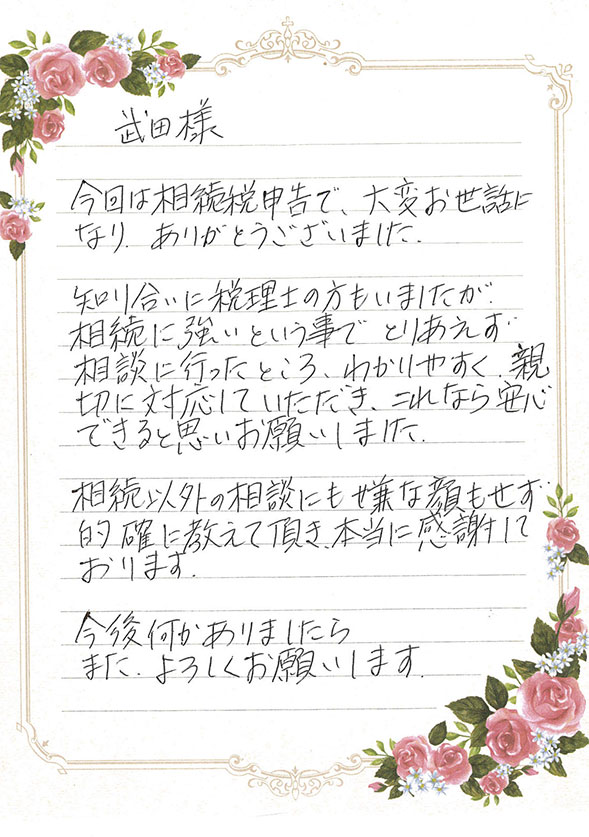 武田様
今回は相続税申告で、大変お世話に
なり、ありがとうございました。
知り合いに税理士の方もいましたが、
相続に強いという事で とりあえず
相談に行ったところ、わかりやすく、親
切に対応していただき、これなら安心
できると思いお願いしました。
相続以外の相談にも嫌な顔もせず
的確に教えて頂き、本当に感謝して
おります。
今後何かありましたら
また、よろしくお願いします。